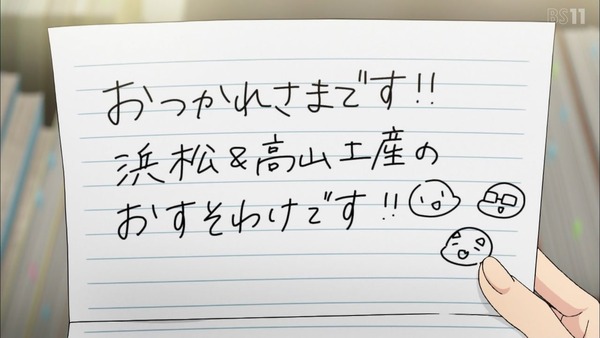 BS11
おつかれさまです!!
浜松&高山土産の
おすそわけです!!